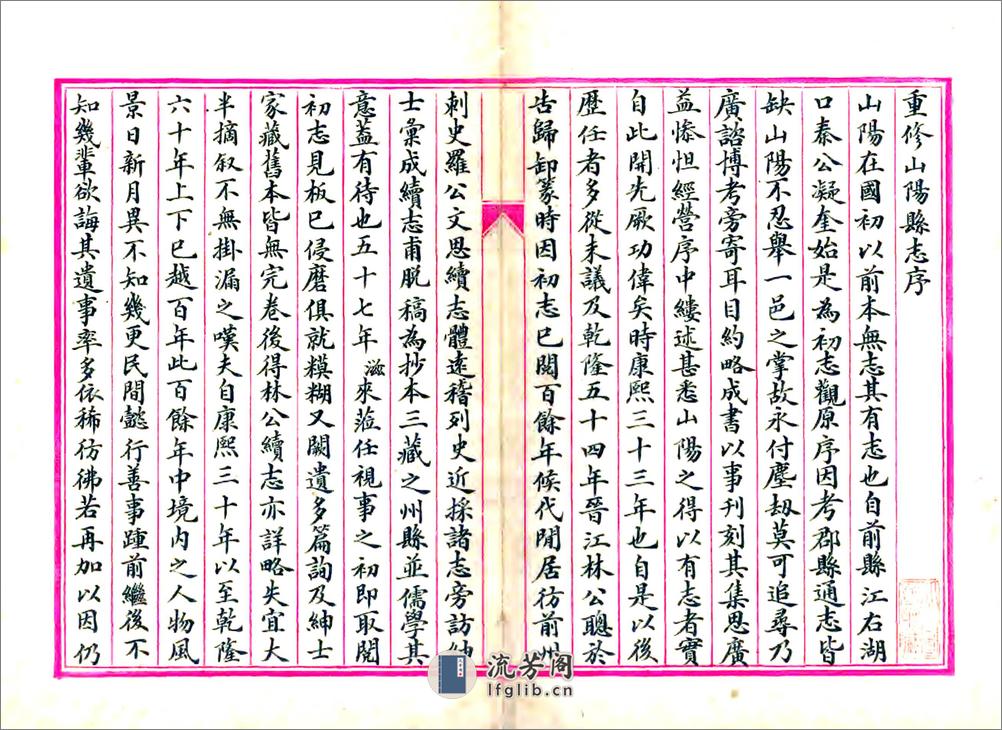 重修山陽縣志序
山陽在國初以前本無志其有志也自前縣江右湖
口秦公凝奎始是為初志觀原序因考郡縣通志皆
缺山陽不忍舉一邑之掌故永付塵劫莫可追尋乃
廣諮博考旁寄耳目約略成書以事刊刻其集思廣
益慘怛經營序中縷述甚悉山陽之得以有志者實
自此開先厥功偉矣時康熙三十三年也自是以後
歷任者多從未議及乾隆五十四年晉江林公聰於
告歸卸篆時因初志已閱百餘年候代閒居彷前州
刺史羅公文思續志體遠稽列史近採諸志旁訪紳
士彙成續志甫脫稿為抄本三藏之州縣並儒學其
意蓋有待也五十七年滋來蒞任視事之初即取閱
初志見板已侵磨俱就糢糊又闕遺多篇詢及紳士
家藏舊本皆無完卷後得林公續志亦詳略失宜大
半摘叙不無掛漏之嘆夫自康熙三十年以至乾隆
六十年上下已越百年此百餘年中境內之人物風
景日新月異不知幾更民間懿行善事踵前繼後不
知幾輩欲誨其遺事率多依稀彷彿若再加以因仍
流芳阁
lfglib.cn